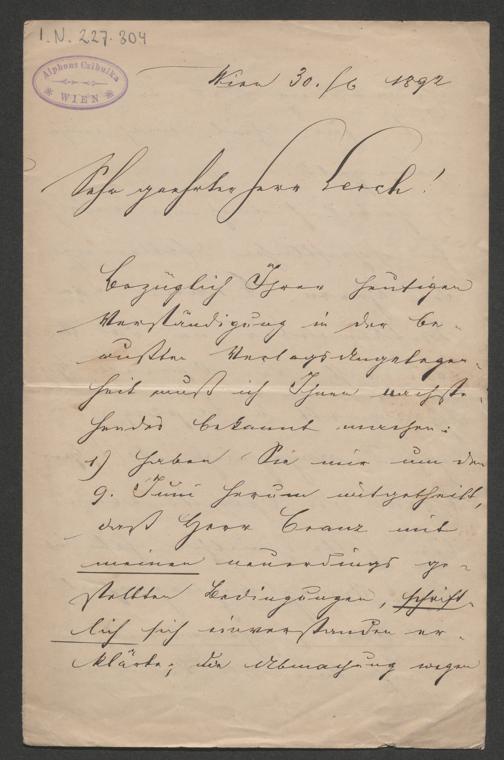 I.N. 227.304
Alphons Czibulka
WIEN
Wien 30./6 1892
Sehr geehrter Herr Lerch!
Bezüglich Ihrer heutigen
Verständigung in der be-
wußten Verlagsangelegen-
heit muß ich Ihnen nachste-
hendes bekannt machen:
1) haben Sie mir um den
9. Juni herum mitgetheilt,
daß Herr Cranz mit
meinen neuerdings ge-
stellten Bedingungen, schrift-
lich sich einverstanden er-
klärte; die Abmachung wegen